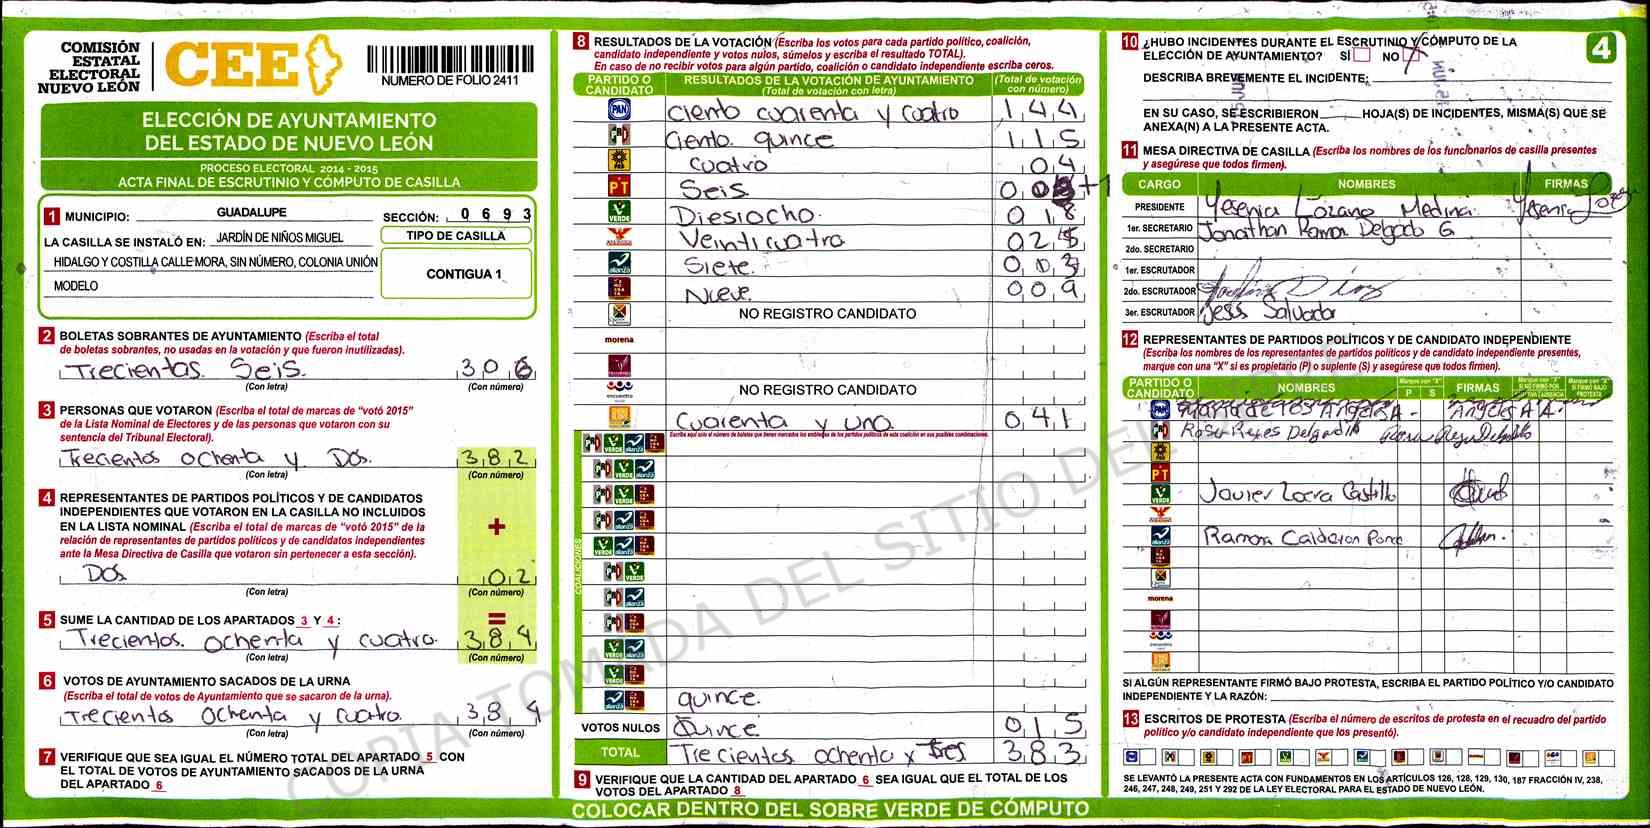 COMISIÓN
ESTATAL
ELECTORAL
NUEVO LEÓN
CEE
NUMERO DE FOLIO 2411
ELECCIÓN DE AYUNTAMIENTO
DEL ESTADO DE NUEVO LEÓN
PROCESO ELECTORAL 2014 - 2015
ACTA FINAL DE ESCRUTINIO Y CÓMPUTO DE CASILLA
1 MUNICIPIO: GUADALUPE SECCIÓN: 0 6 9 3
LA CASILLA SE INSTALÓ EN: JARDÍN DE NIÑOS MIGUEL
HIDALGO Y COSTILLA CALLE MORA, SIN NÚMERO, COLONIA UNIÓN
MODELO
TIPO DE CASILLA
CONTIGUA 1
2 BOLETAS SOBRANTES DE AYUNTAMIENTO (Escriba el total
de boletas sobrantes, no usadas en la votación y que fueron inutilizadas).
Trecientas Seis. 306
(Con letra) (Con número)
3 PERSONAS QUE VOTARON (Escriba el total de marcas de “votó 2015”
de la Lista Nominal de Electores y de las personas que votaron con su
sentencia del Tribunal Electoral).
Trecientos ochenta y Dos. 382
(Con letra) (Con número)
4 REPRESENTANTES DE PARTIDOS POLÍTICOS Y DE CANDIDATOS
INDEPENDIENTES QUE VOTARON EN LA CASILLA NO INCLUIDOS
EN LA LISTA NOMINAL (Escriba el total de marcas de “votó 2015” de la
relación de representantes de partidos políticos y de candidatos independientes
ante la Mesa Directiva de Casilla que votaron sin pertenecer a esta sección).
+
Dos 02
(Con letra) (Con número)
=
5 SUME LA CANTIDAD DE LOS APARTADOS 3 Y 4 :
Trecientos. ochenta y cuatro. 384
(Con letra) (Con número)
6 VOTOS DE AYUNTAMIENTO SACADOS DE LA URNA
(Escriba el total de votos de Ayuntamiento que se sacaron de la urna).
Trecientos Ochenta y cuatro. 384
(Con letra) (Con número)
7 VERIFIQUE QUE SEA IGUAL EL NÚMERO TOTAL DEL APARTADO 5 CON
EL TOTAL DE VOTOS DE AYUNTAMIENTO SACADOS DE LA URNA
DEL APARTADO 6
8 RESULTADOS DE LA VOTACIÓN (Escriba los votos para cada partido político, coalición,
candidato independiente y votos nulos, súmelos y escriba el resultado TOTAL).
En caso de no recibir votos para algún partido, coalición o candidato independiente escriba ceros.
PARTIDO O
CANDIDATO
RESULTADOS DE LA VOTACIÓN DE AYUNTAMIENTO
(Total de votación con letra)
(Total de votación
con número)
PAN Ciento cuarenta y cuatro 144
PRD Ciento quince 115
Cuatro 04
PT Seis 00 +1
VERDE Diesiocho. 018
Veinticuatro 02
alianza Siete. 00
Nueve. 009
NO REGISTRO CANDIDATO
morena
NO REGISTRO CANDIDATO
encuentro
Cuarenta y uno. 041
Escriba aquí solo el número de boletas que tienen marcados los emblemas de los partidos políticos de esta coalición en sus posibles combinaciones.
COALICIONES
quince.
VOTOS NULOS Quince 015
TOTAL Trecientos ochenta y tres 383
9 VERIFIQUE QUE LA CANTIDAD DEL APARTADO 6 SEA IGUAL QUE EL TOTAL DE LOS
VOTOS DEL APARTADO 8
COLOCAR DENTRO DEL SOBRE VERDE DE CÓMPUTO
10 ¿HUBO INCIDENTES DURANTE EL ESCRUTINIO Y CÓMPUTO DE LA
ELECCIÓN DE AYUNTAMIENTO? SI NO
4
DESCRIBA BREVEMENTE EL INCIDENTE:
EN SU CASO, SE ESCRIBIERON HOJA(S) DE INCIDENTES, MISMA(S) QUE SE
ANEXA(N) A LA PRESENTE ACTA.
11 MESA DIRECTIVA DE CASILLA (Escriba los nombres de los funcionarios de casilla presentes
y asegúrese que todos firmen).
CARGO NOMBRES FIRMAS
PRESIDENTE Yesenia Lozano Medina Yesenia
1er. SECRETARIO Jonathan Ramon Delgado G
2do. SECRETARIO
1er. ESCRUTADOR
2do. ESCRUTADOR Díaz
3er. ESCRUTADOR Jess Salvador
12 REPRESENTANTES DE PARTIDOS POLÍTICOS Y DE CANDIDATO INDEPENDIENTE
(Escriba los nombres de los representantes de partidos políticos y de candidato independiente presentes,
marque con una "X" si es propietario (P) o suplente (S) y asegúrese que todos firmen).
PARTIDO O
CANDIDATO
NOMBRES
Marque con "X"
P S
FIRMAS
Maria de los Angeles A- Angeles A A-
Rosa Reyes Delgadillo Rosa Reyes Delgadillo
Javier Loera Castillo
Ramon Calderon Ponce
morena
SI ALGÚN REPRESENTANTE FIRMÓ BAJO PROTESTA, ESCRIBA EL PARTIDO POLÍTICO Y/O CANDIDATO
INDEPENDIENTE Y LA RAZÓN:
13 ESCRITOS DE PROTESTA (Escriba el número de escritos de protesta en el recuadro del partido
político y/o candidato independiente que los presentó).
SE LEVANTÓ LA PRESENTE ACTA CON FUNDAMENTOS EN LOS ARTÍCULOS 126, 128, 129, 130, 187 FRACCIÓN IV, 238,
246, 247, 248, 249, 251 Y 292 DE LA LEY ELECTORAL PARA EL ESTADO DE NUEVO LEÓN.
COPIA TOMADA DEL SITIO DEL